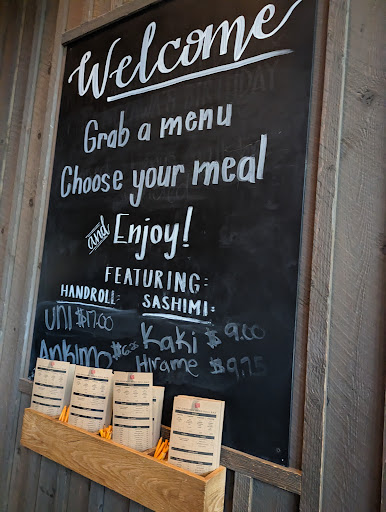 Welcome
Grab a menu
Choose your meal
and Enjoy!
FEATURING:
HANDROLL: SASHIMI:
UNI $17.00 Kaki $9.00
Ankimo Hirame $9.75